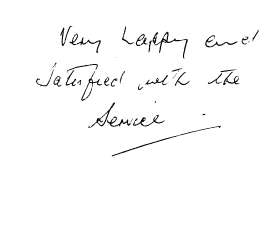 Very happy and
Satisfied with the
Service.